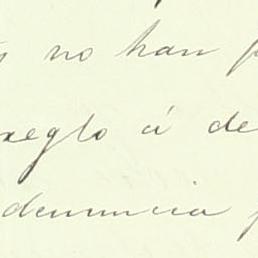 no han
reglo á de
denuncia